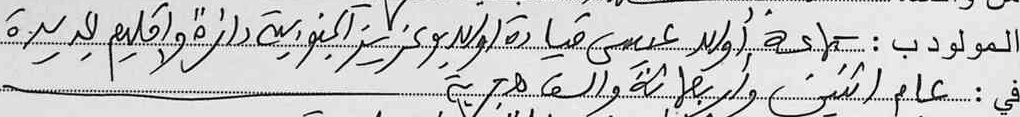 المولود ب: جماعة أولاد عيسى قيادة اولاد بوعزيز الجنوبية دائرة واقليم الجديدة
في: عام اثنين وأربعمائة والف هجرية